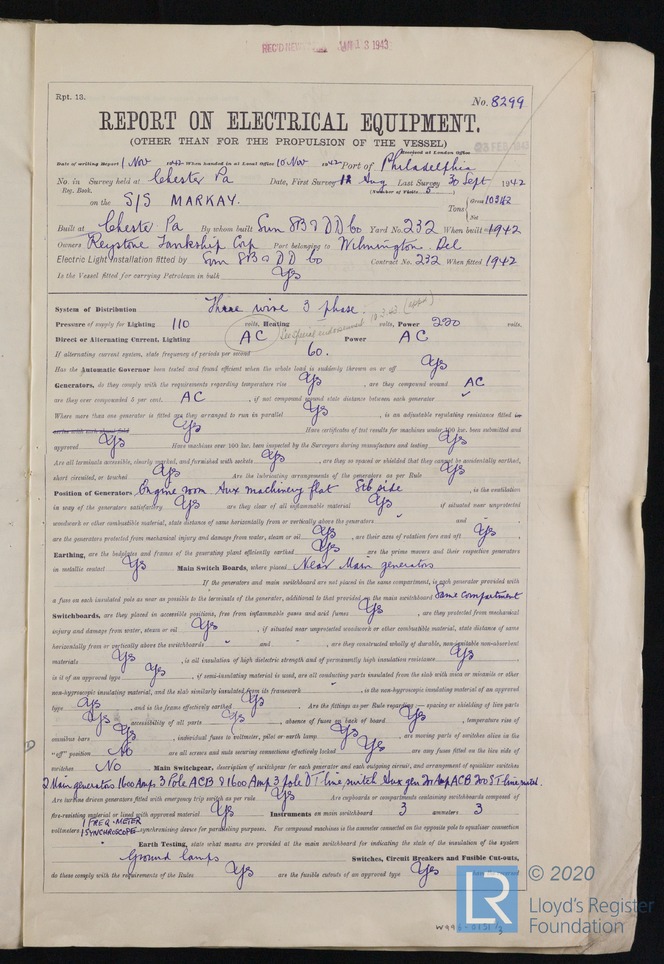 REC'D NEW YORK JAN 13 1943
Rpt. 13.
No. 8299
REPORT ON ELECTRICAL EQUIPMENT.
(OTHER THAN FOR THE PROPULSION OF THE VESSEL)
Received at London Office 23 FEB 1943
Date of writing Report 1 Nov 1942 When handed in at Local Office 10 Nov 1942 Port of Philadelphia
No. in Survey held at Chester Pa Date, First Survey 12 Aug Last Survey 30 Sept 1942
Reg. Book. (Number of Visits 5)
on the S/S MARKAY. Tons Gross 10342
Net
Built at Chester Pa By whom built Sun SB & DD Co Yard No. 232 When built 1942
Owners Keystone Tankship Corp Port belonging to Wilmington Del
Electric Light Installation fitted by Sun SB & DD Co Contract No. 232 When fitted 1942
Is the Vessel fitted for carrying Petroleum in bulk Yes
System of Distribution Three wire 3 phase.
Pressure of supply for Lighting 110 volts, Heating volts, Power 220 volts.
Direct or Alternating Current, Lighting AC Power AC
If alternating current system, state frequency of periods per second 60.
Has the Automatic Governor been tested and found efficient when the whole load is suddenly thrown on or off Yes
Generators, do they comply with the requirements regarding temperature rise Yes, are they compound wound AC
are they over compounded 5 per cent. AC, if not compound wound state distance between each generator
Where more than one generator is fitted are they arranged to run in parallel Yes, is an adjustable regulating resistance fitted in
series with each shunt field Yes Have certificates of test results for machines under 100 kw. been submitted and
approved Yes Have machines over 100 kw. been inspected by the Surveyors during manufacture and testing Yes
Are all terminals accessible, clearly marked, and furnished with sockets Yes, are they so spaced or shielded that they cannot be accidentally earthed,
short circuited, or touched Yes Are the lubricating arrangements of the generators as per Rule Yes
Position of Generators Engine room Aux machinery flat Stb side, is the ventilation
in way of the generators satisfactory Yes are they clear of all inflammable material Yes, if situated near unprotected
woodwork or other combustible material, state distance of same horizontally from or vertically above the generators and
are the generators protected from mechanical injury and damage from water, steam or oil Yes, are their axes of rotation fore and aft Yes.
Earthing, are the bedplates and frames of the generating plant efficiently earthed Yes are the prime movers and their respective generators
in metallic contact Yes Main Switch Boards, where placed Near Main generators
If the generators and main switchboard are not placed in the same compartment, is each generator provided with
a fuse on each insulated pole as near as possible to the terminals of the generator, additional to that provided on the main switchboard Same compartment
Switchboards, are they placed in accessible positions, free from inflammable gases and acid fumes Yes, are they protected from mechanical
injury and damage from water, steam or oil Yes, if situated near unprotected woodwork or other combustible material, state distance of same
horizontally from or vertically above the switchboards " and ", are they constructed wholly of durable, non-ignitable non-absorbent
materials Yes, is all insulation of high dielectric strength and of permanently high insulation resistance Yes,
is it of an approved type Yes, if semi-insulating material is used, are all conducting parts insulated from the slab with mica or micanite or other
non-hygroscopic insulating material, and the slab similarly insulated from its framework, is the non-hygroscopic insulating material of an approved
type Yes, and is the frame effectively earthed Yes. Are the fittings as per Rule regarding:— spacing or shielding of live parts
Yes, accessibility of all parts Yes, absence of fuses on back of board Yes, temperature rise of
omnibus bars Yes, individual fuses to voltmeter, pilot or earth lamp Yes, are moving parts of switches alive in the
"off" position No are all screws and nuts securing connections effectively locked Yes, are any fuses fitted on the live side of
switches No Main Switchgear, description of switchgear for each generator and each outgoing circuit, and arrangement of equaliser switches
2 Main generators 1600 Amp 3 Pole ACB & 1600 Amp 3 pole DT line switch Aux gen 200 Amp ACB 200 ST line switch.
Are turbine driven generators fitted with emergency trip switch as per rule Yes Are cupboards or compartments containing switchboards composed of
fire-resisting material or lined with approved material Yes Instruments on main switchboard 3 ammeters 3
voltmeters 1 FREQ-METER 1 SYNCHROSCOPE synchronising device for paralleling purposes. For compound machines is the ammeter connected on the opposite pole to equaliser connection
Earth Testing, state what means are provided at the main switchboard for indicating the state of the insulation of the system
Ground lamps Switches, Circuit Breakers and Fusible Cut-outs,
do these comply with the requirements of the Rules Yes are the fusible cutouts of an approved type Yes
© 2020
LR Lloyd's Register
Foundation